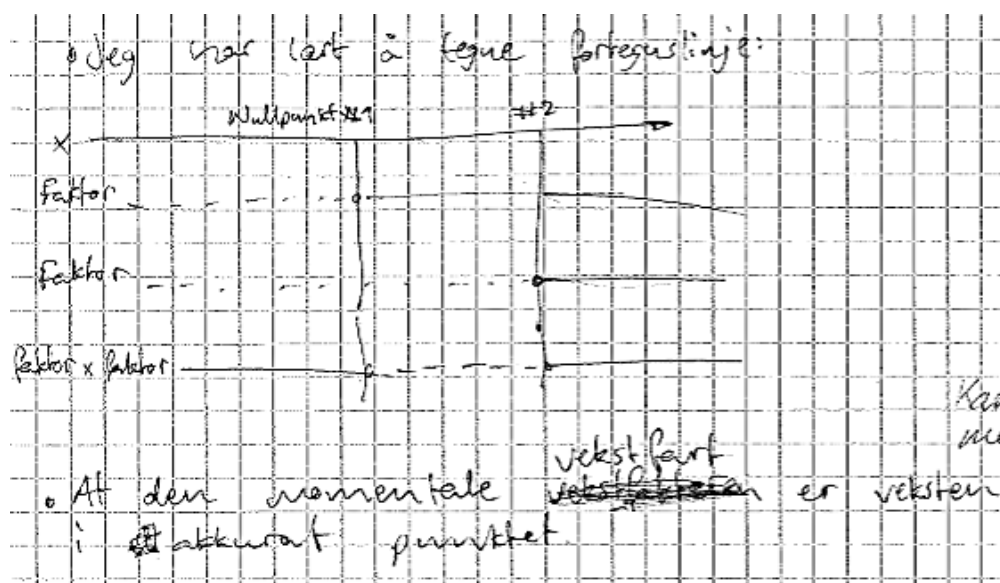 • Jeg har lært å tegne fortegnslinje:
Nullpunkt #1 #2
x
faktor
faktor
faktor x faktor
vekstfart
• At den momentale er veksten
i akkurat punktet.